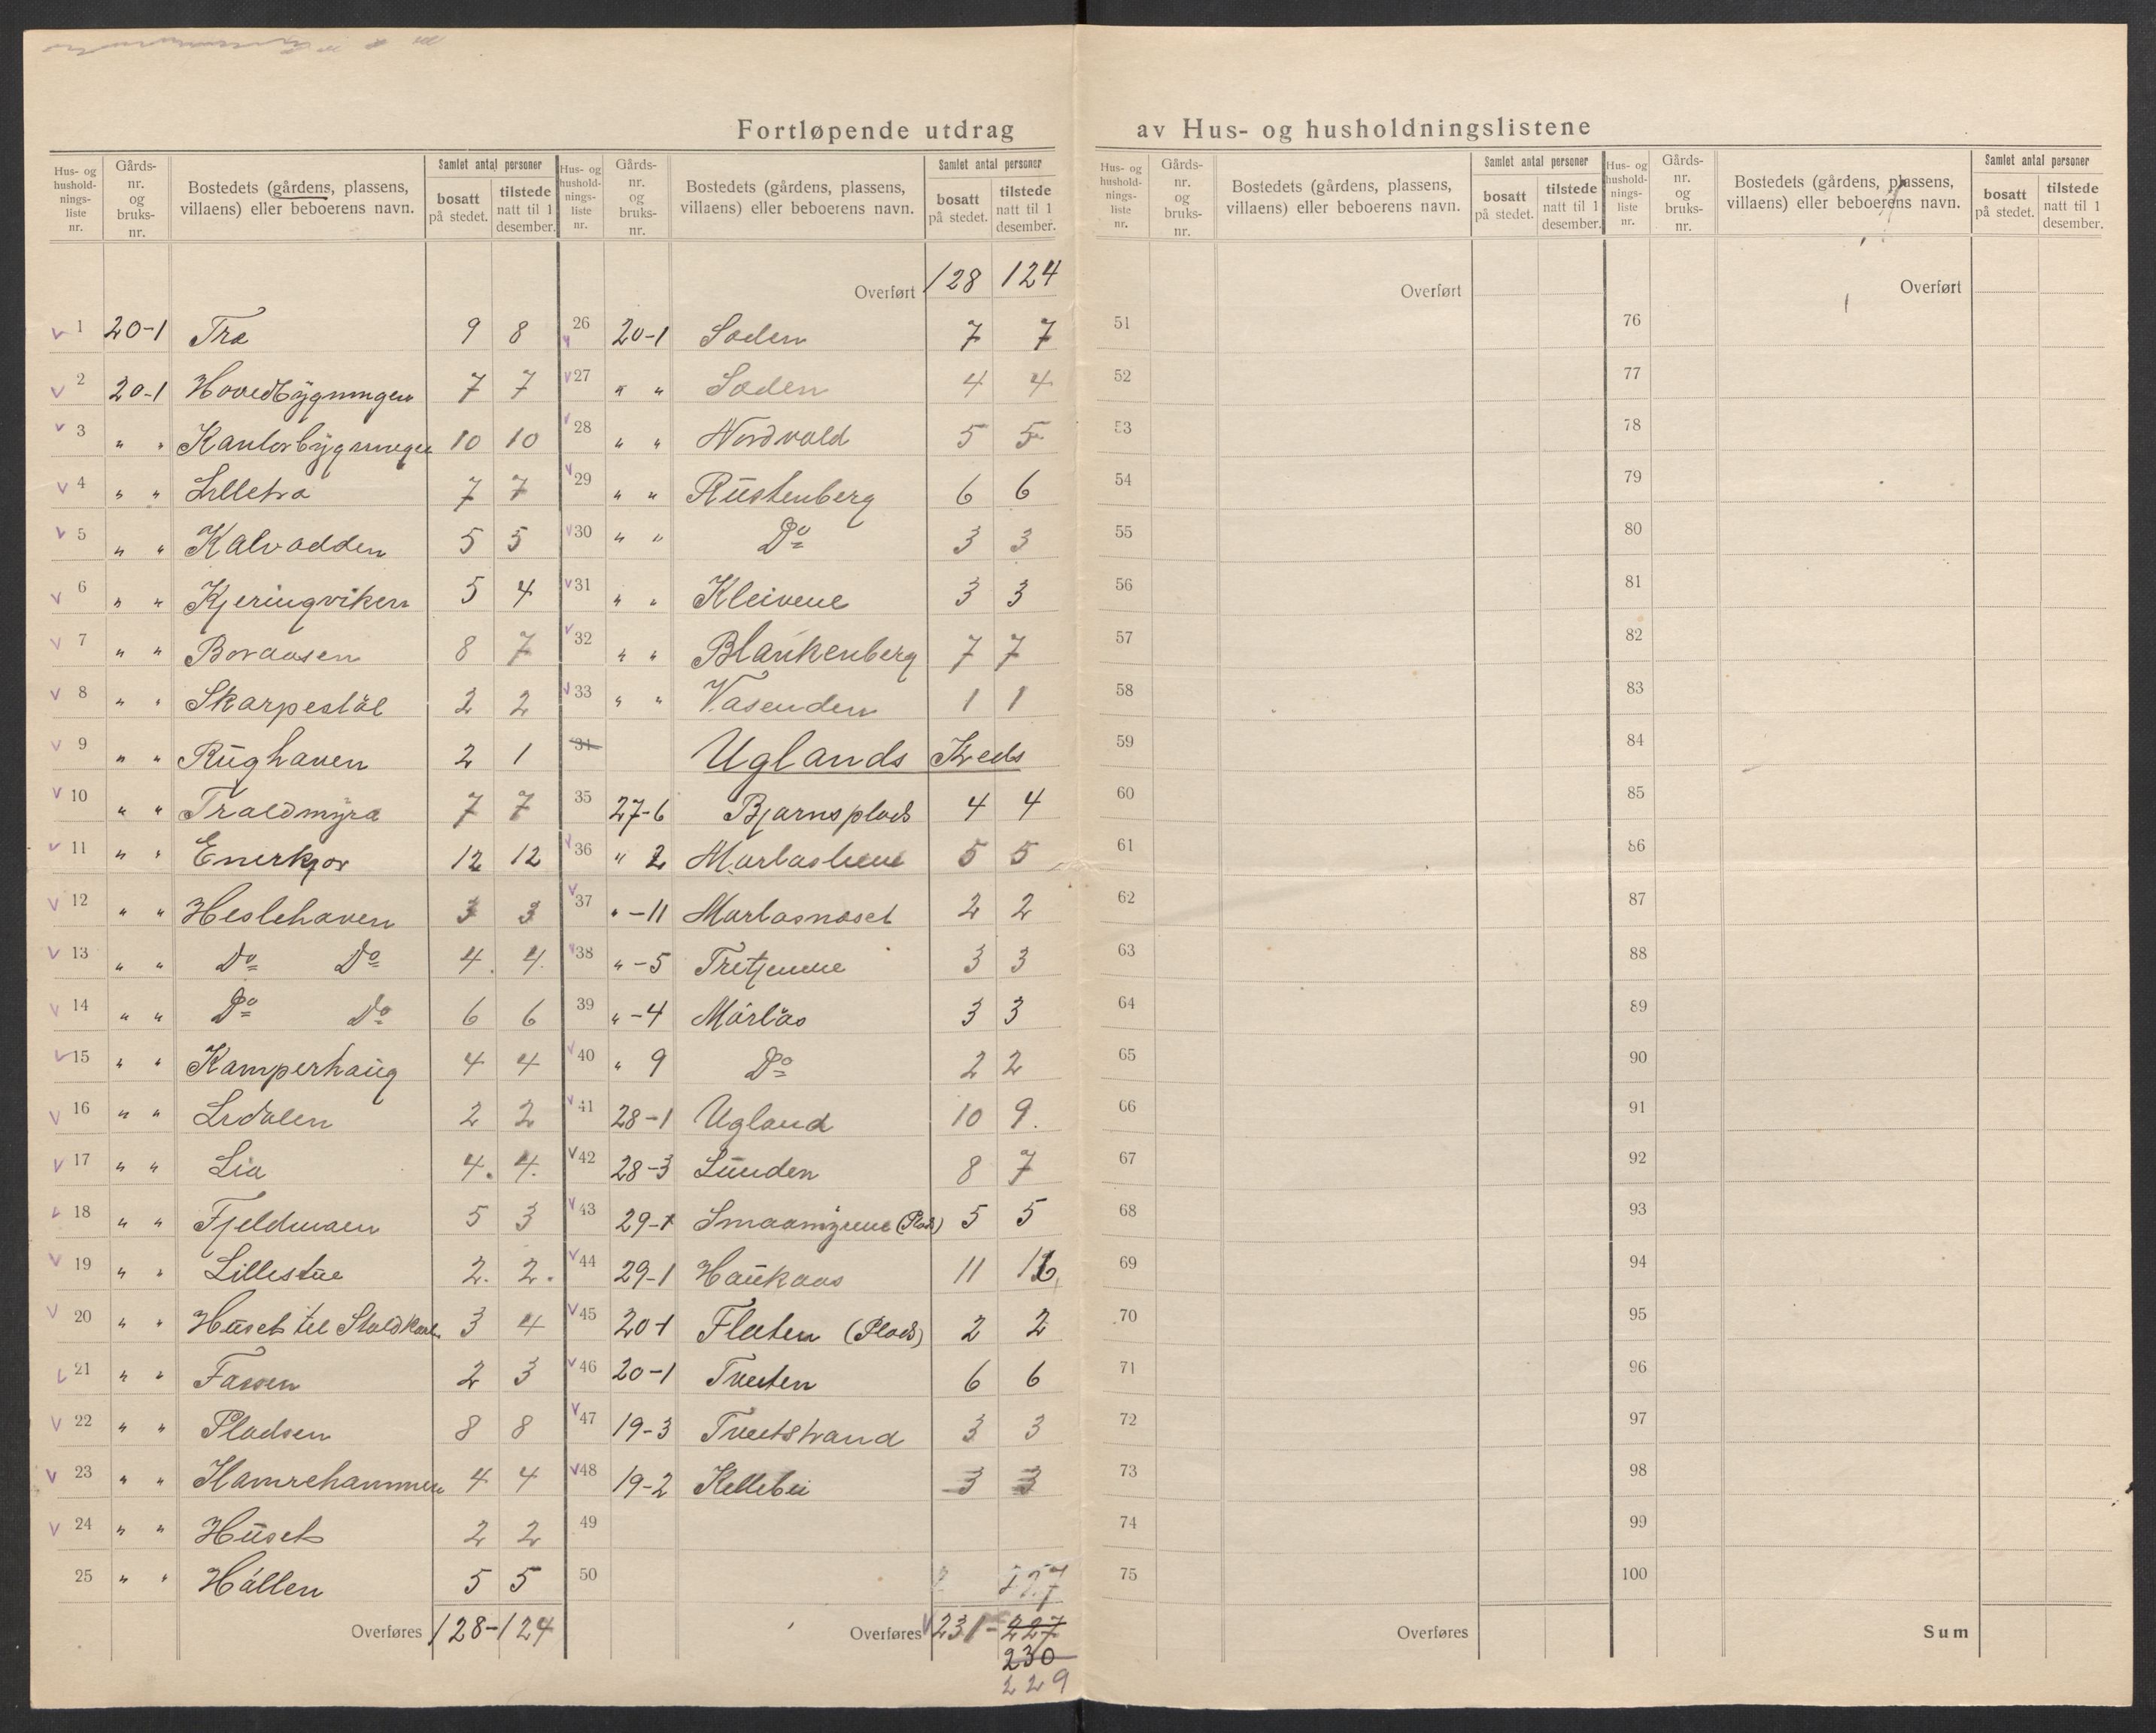 Fortløpende utdrag av Hus- og husholdningslistene
Hus- og husholdnings-liste nr. Gårds-nr. og bruks-nr. Bostedets (gårdens, plassens, villaens) eller beboerens navn. Samlet antal personer bosatt på stedet. tilstede natt til 1 desember.
1 20-1 Tra 9 8
2 20-1 Hovedbÿgningen 7 7
3 " " Kantorbÿgningen 10 10
4 " " Lilletra 7 7
5 " " Kalvodden 5 5
6 " " Kjeringviken 5 4
7 " " Boraasen 8 7
8 " " Skarpestöl 2 2
9 " " Rüghaven 2 1
10 " " Traldmÿra 7 7
11 " " Enerkjær 12 12
12 " " Heslehaven 3 3
13 " " Do Do 4. 4.
14 " " Do Do 6 6
15 " " Kamperhaüg 4 4
16 " " Lidalen 2 2
17 " " Lia 4. 4.
18 " " Fjeldmaen 5 3
19 " " Lillestüe 2. 2.
20 " " Hüset til Staldkarl 3 4
21 " " 2 3
22 " " Pladsen 8 8
23 " " Hamrehammen 4 4
24 " " Hüset 2 2
25 " " Hållen 5 5
Overføres 128-124
Hus- og husholdnings-liste nr. Gårds-nr. og bruks-nr. Bostedets (gårdens, plassens, villaens) eller beboerens navn. Samlet antal personer bosatt på stedet. tilstede natt til 1 desember.
Overført 128 124
26 20-1 Loden 7 7
27 " " Loden 4 4
28 " " Nordvold 5 5
29 " " Rüstenberg 6 6
30 " " Do 3 3
31 " " Kleivene 3 3
32 " " Blankenberg 7 7
33 " " Vasenden 1 1
34 Uglands Kreds
35 27-6 Bjørnsplads 4 4
36 " 2 5 5
37 " -11 Morlasnæset 2 2
38 " -5 Tretjenne 3 3
39 " -4 Mörläs 3 3
40 " 9 Do 2 2
41 28-1 Ugland 10 9.
42 28-3 Lünden 8 7
43 29-1 Smaamÿrene (Plads) 5 5
44 29-1 Haükaas 11
45 20-1 Flaten (Plads) 2 2
46 20-1 Tveiten 6 6
47 19-3 Tveitstrand 3 3
48 19-2 3 3
49
50 227
Overføres 231-227
230
229
Hus- og husholdnings-liste nr. Gårds-nr. og bruks-nr. Bostedets (gårdens, plassens, villaens) eller beboerens navn. Samlet antal personer bosatt på stedet. tilstede natt til 1 desember.
Overført
51
52
53
54
55
56
57
58
59
60
61
62
63
64
65
66
67
68
69
70
71
72
73
74
75
Overføres
Hus- og husholdnings-liste nr. Gårds-nr. og bruks-nr. Bostedets (gårdens, plassens, villaens) eller beboerens navn. Samlet antal personer bosatt på stedet. tilstede natt til 1 desember.
Overført
76
77
78
79
80
81
82
83
84
85
86
87
88
89
90
91
92
93
94
95
96
97
98
99
100
Sum